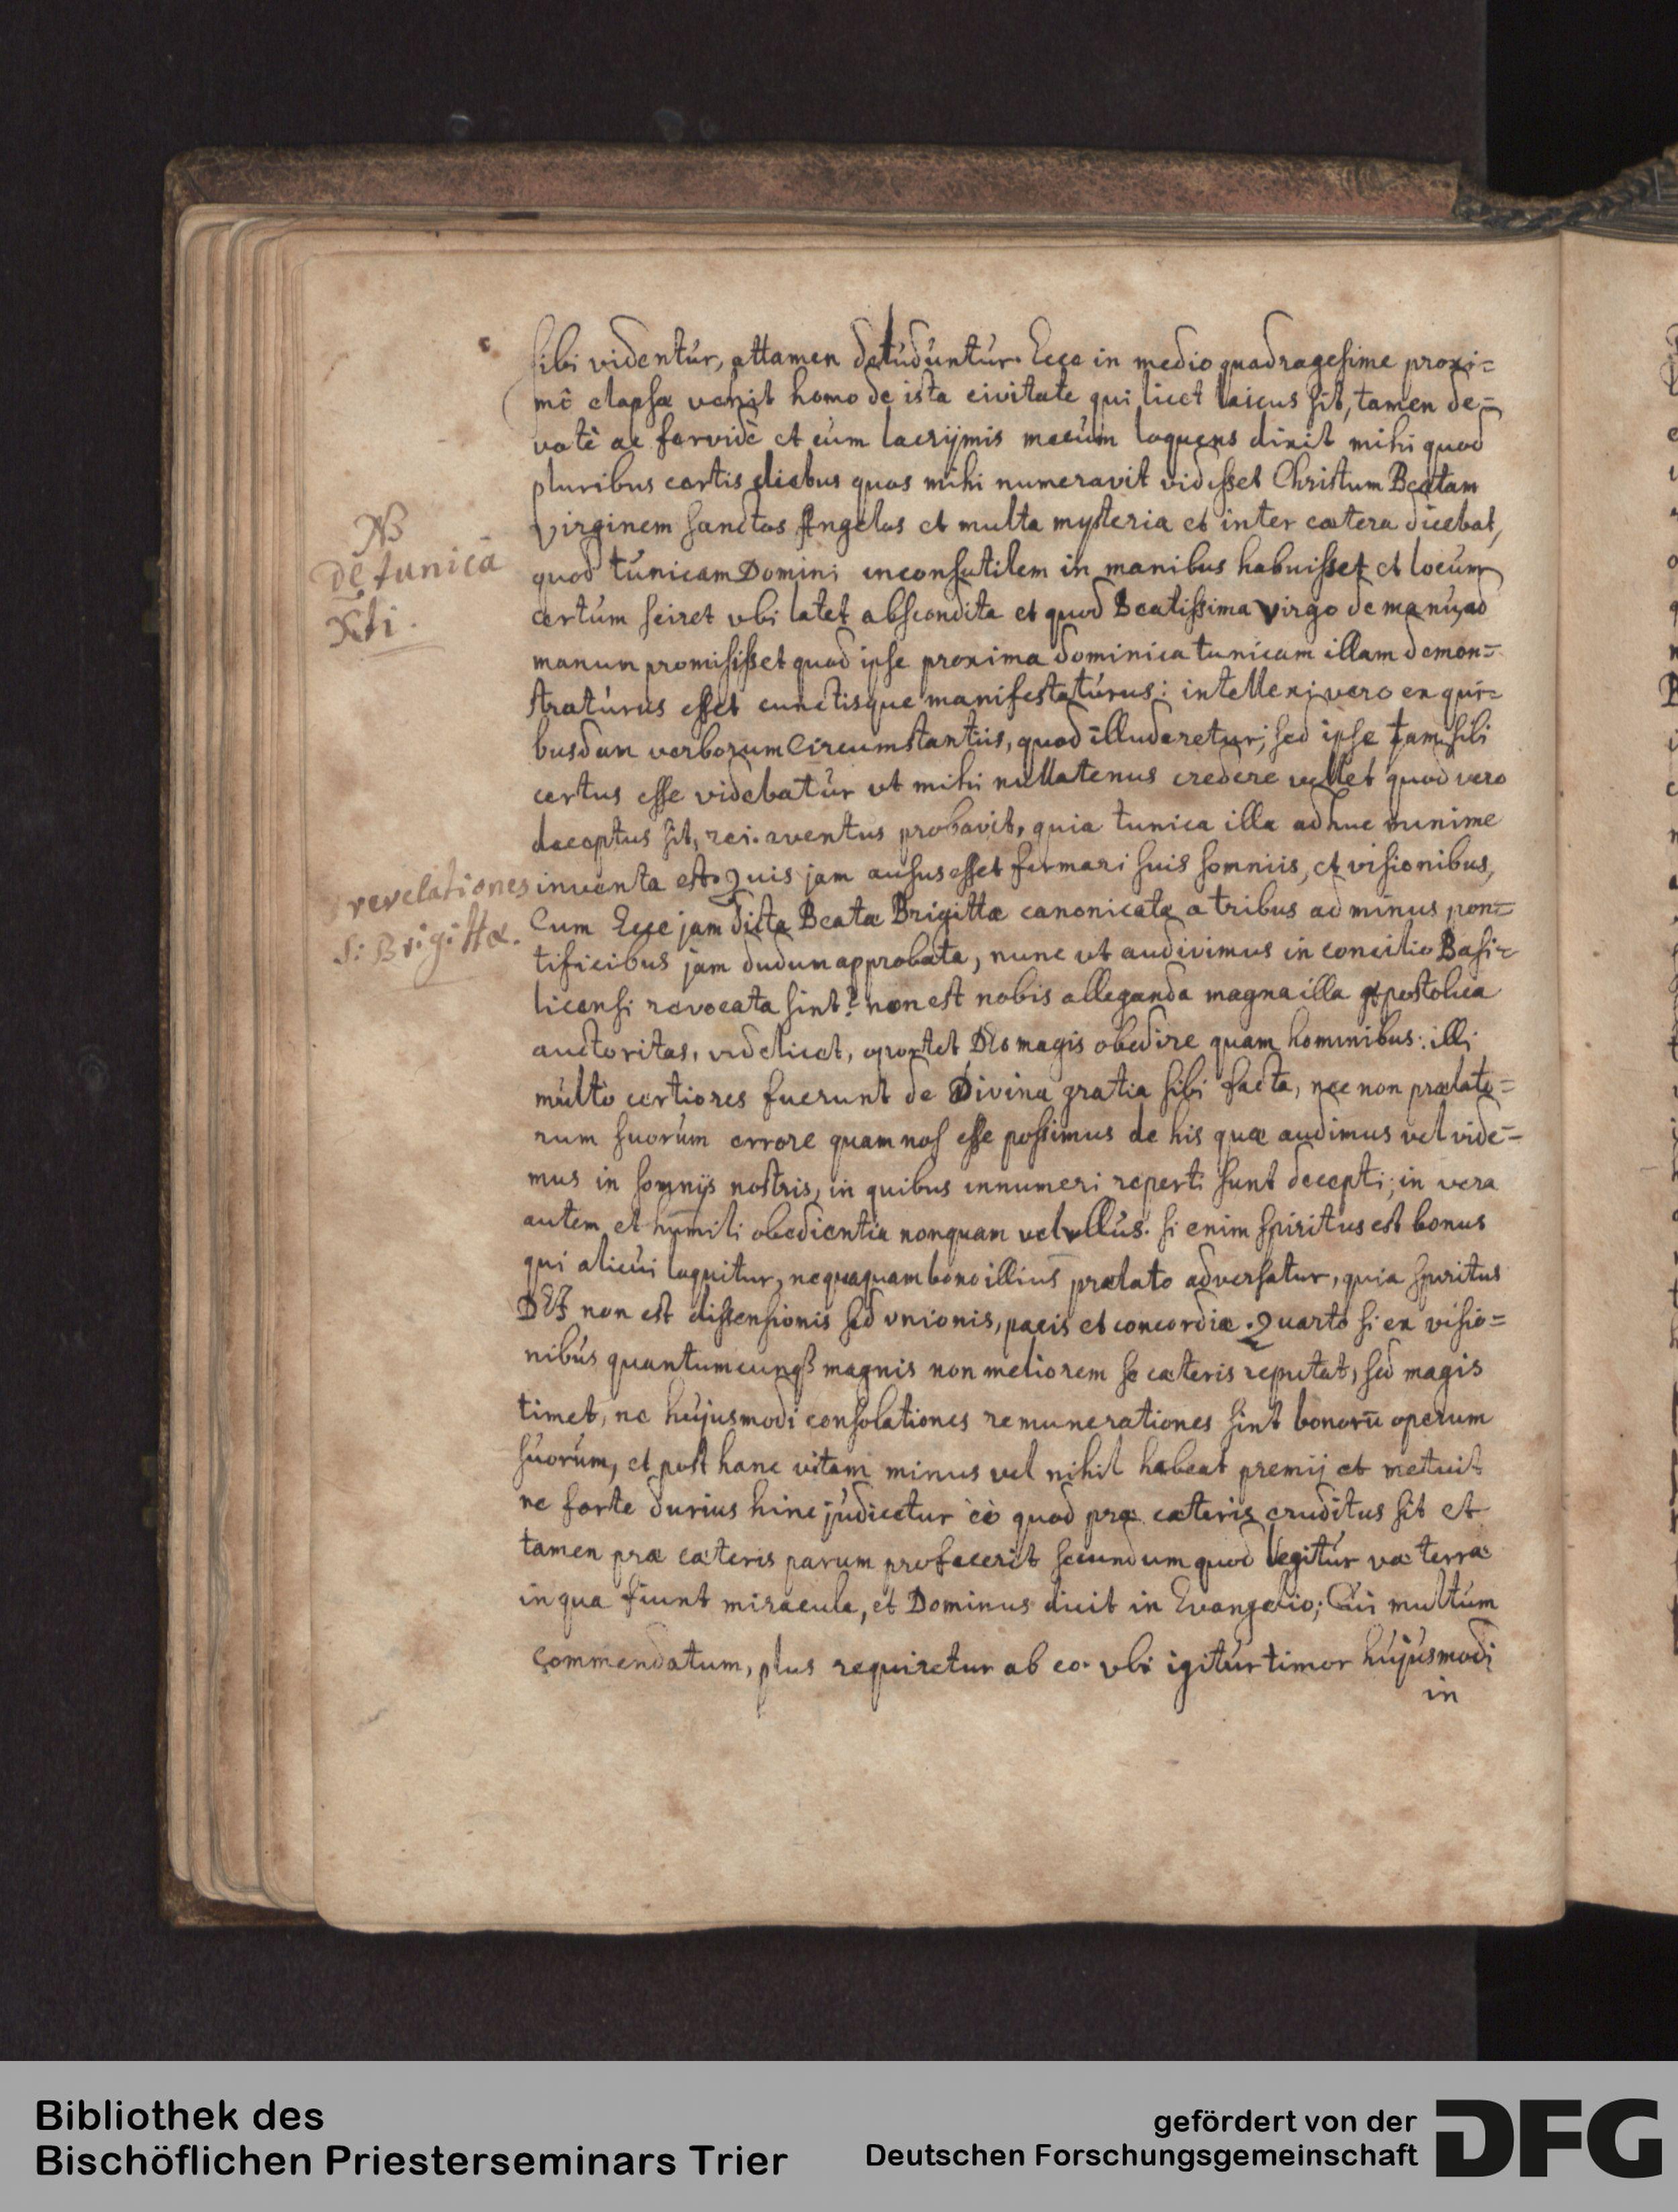 sibi videntur, attamen deluduntur. Ecce in medio quadragesime proxi=
mè elapsæ venit homo de ista civitate qui licet laicus sit, tamen de=
votè ac fervidè et cum lacrijmis mecum loquens dixit mihi quod
pluribus certis diebus quos mihi numeravit vidisset Christum Beatam
Virginem sanctos Angelos et multa mysteria et inter cætera dicebat,
NB
de tunicâ
Xti.
quod tunicam Domini inconsutilem in manibus habuisset et locum
certum sciret vbi latet abscondita et quod Beatissima virgo de manu ad
manun promisisset quod ipse proxima dominica tunicam illam demon=
straturus esset cunctisque manifestaturus: intellexi vero ex qui=
busdam verborum Circumstantiis, quod illuderetur; sed ipse tam sibi
certus esse videbatur vt mihi nullatenus credere vellet quod vero
deceptus sit, rei eventus probavit, quia tunica illa adhuc minime
revelationes
S: Brigittæ.
inventa est. Quis jam ausus esset firmari suis somniis, et visionibus,
Cum Ecce jam dicta Beatæ Brigittæ canonicatæ a tribus ad minus pon=
tificibus jam dudum approbata, nunc ut audivimus in concilio Basi=
licensi revocata sint? non est nobis alleganda magna illa apostolica
auctoritas, videlicet, oportet Deo magis obedire quam hominibus: illi
multò certiores fuerunt de Divina gratia sibi facta, nec non prælato=
rum suorum errore quam nos esse possimus de his quæ audimus vel vide=
mus in somnijs nostris, in quibus innumeri reperti sunt decepti; in vera
autem et humili obedientia nonquam vel vllus. si enim spiritus est bonus
qui alicui loquitur, nequaquam bono illius prælato adversatur, quia spiritus
DEI non est dissensionis sed vnionis, pacis et concordiæ. Quarto si ex visio=
nibus quantumcunqȝ magnis non meliorem se cæteris reputat, sed magis
timet, ne hujusmodi consolationes remunerationes sint bonorū operum
suorum, et post hanc vitam minus vel nihil habeat premij et metuit
ne forte durius hinc judicetur èò quod præ cæteris eruditus sit et
tamen præ cæteris parum profecerit secundum quod legitur væ terræ
in qua fiunt miracula, et Dominus dicit in Evangelio; Cui multum
commendatum, plus requiretur ab eo. vbi igitur timor hujusmodi
in
Bibliothek des
Bischöflichen Priesterseminars Trier
gefördert von der
Deutschen Forschungsgemeinschaft
DFG